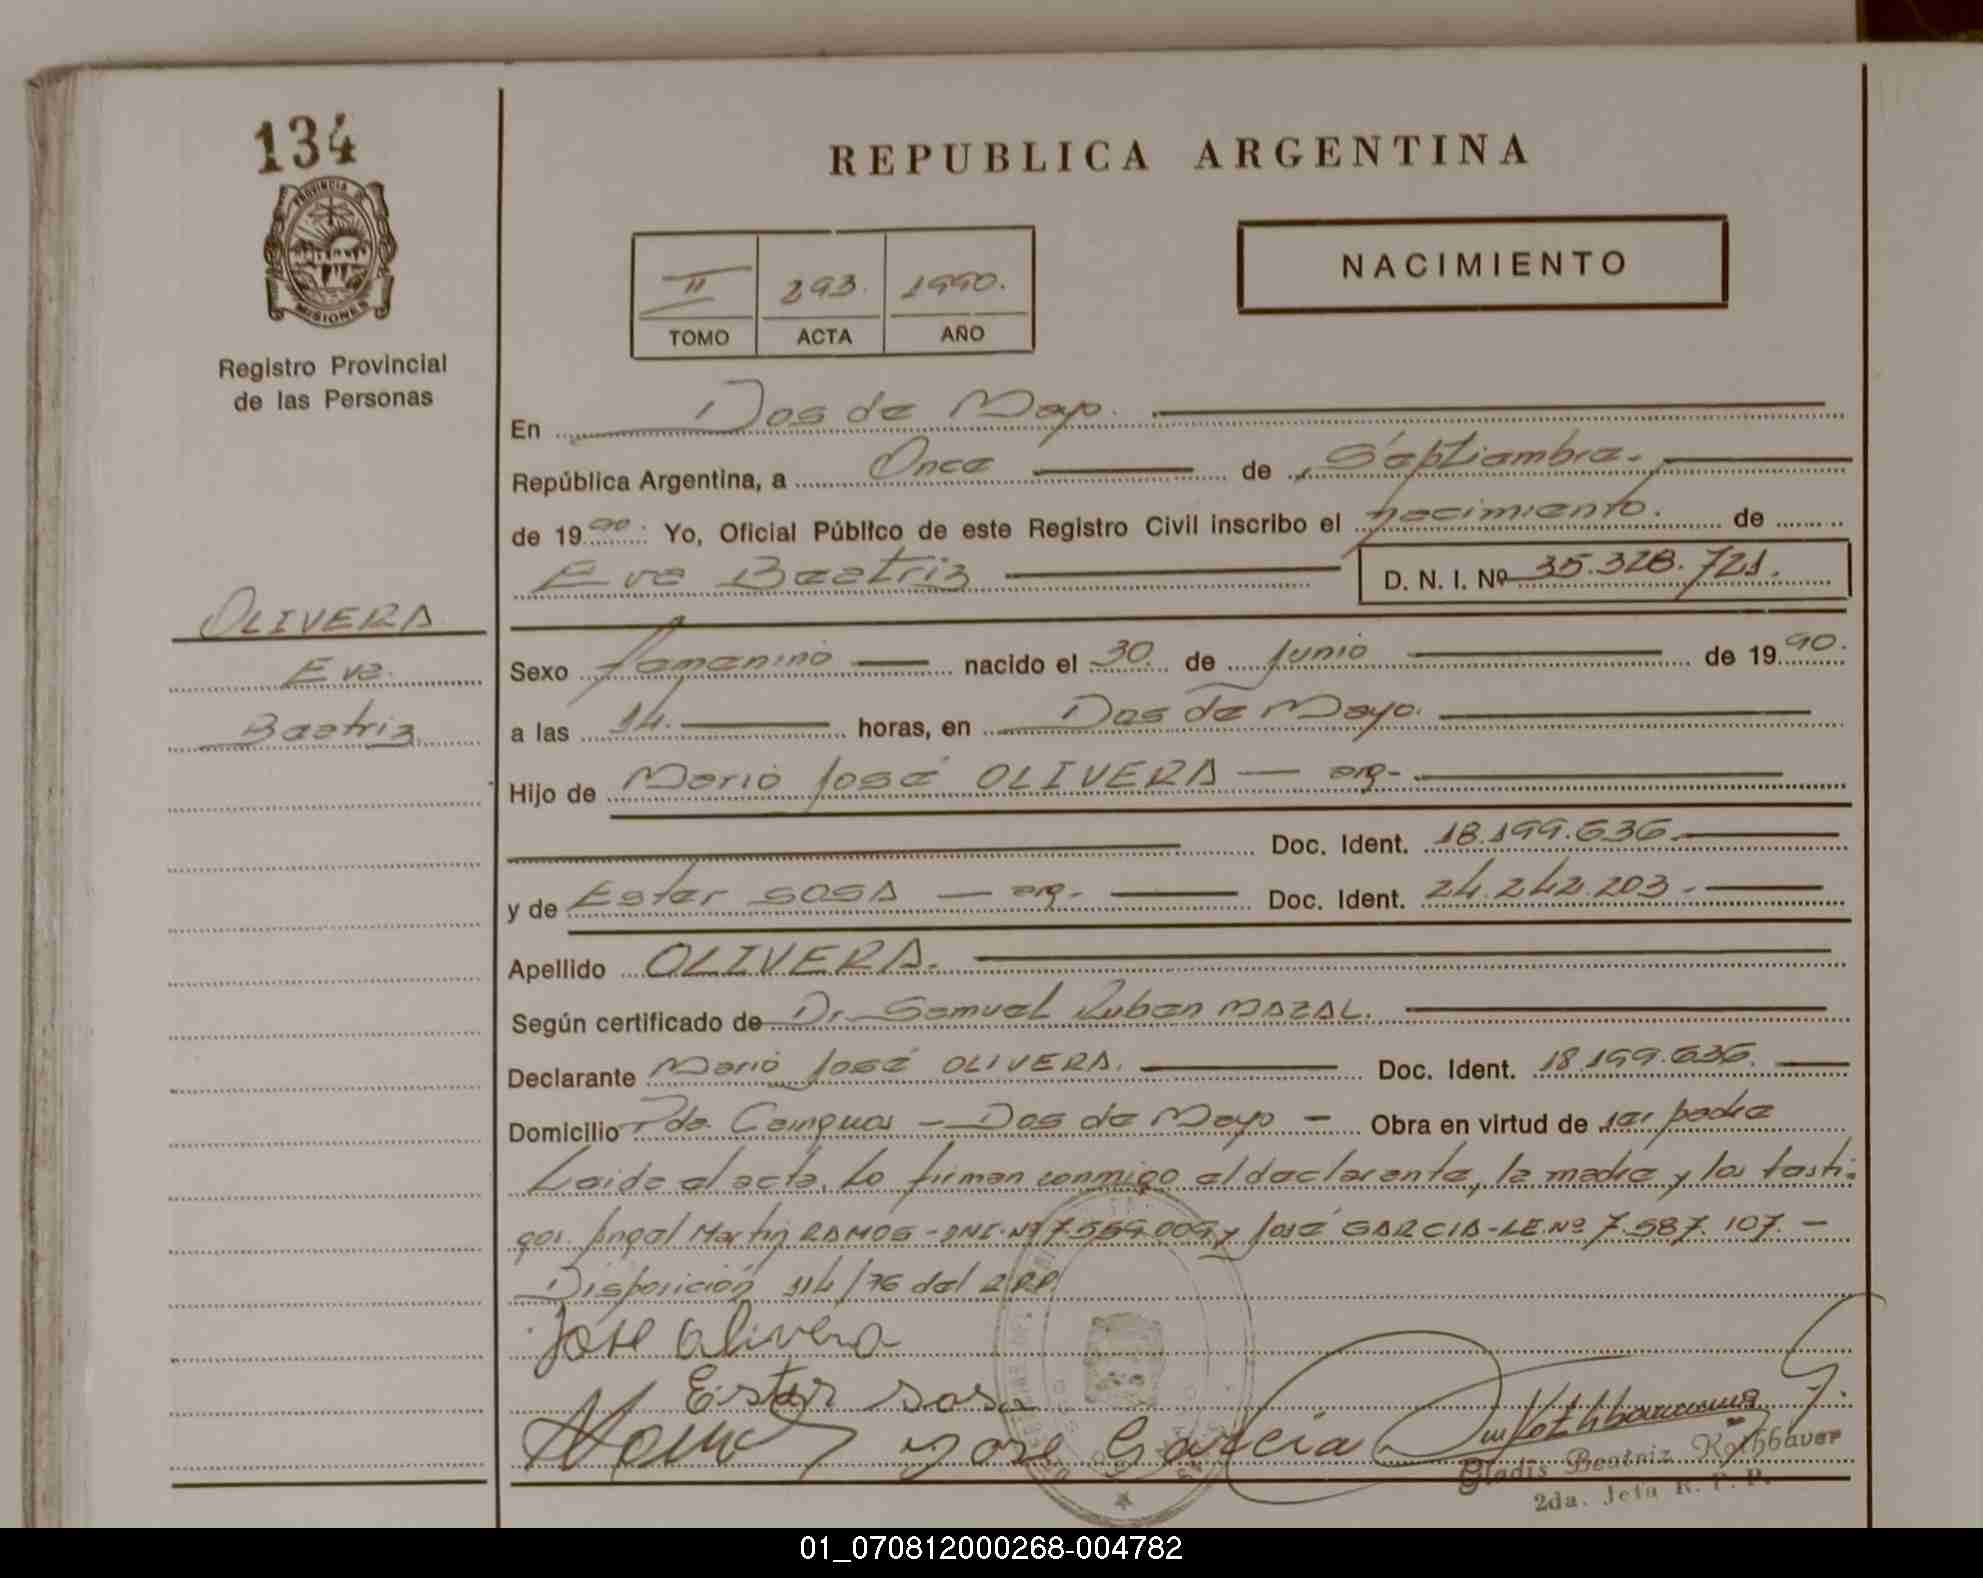 134
PROVINCIA DE
MISIONES
Registro Provincial
de las Personas
OLIVERA
Eva
Beatriz
REPUBLICA ARGENTINA
NACIMIENTO
II 293. 1990.
TOMO ACTA AÑO
En Dos de Mayo.
República Argentina, a Once de Septiembre.
de 1990: Yo, Oficial Público de este Registro Civil inscribo el nacimiento. de
Eva Beatriz D. N. I. Nº 35.328.721.
Sexo femenino nacido el 30 de Junio de 1990.
a las 14. horas, en Dos de Mayo.
Hijo de Mario José OLIVERA — arg-
Doc. Ident. 18.199.636.
y de Ester SOSA — arg- Doc. Ident. 24.242.203-
Apellido OLIVERA.
Según certificado de Dr. Samuel Ruben MAZAL.
Declarante Mario José OLIVERA. Doc. Ident. 18.199.636.
Domicilio Pdo. Cainguas - Dos de Mayo - Obra en virtud de ser padre
Leida el acta, lo firman conmigo el declarante, la madre y los testi-
gos. Angel Martin RAMOS-DNI.Nº 7.559.009 y José GARCIA-LE.Nº 7.587.107.-
Disposición 114/76 del R.P.P.
José Olivera
Ester sosa
Jose Garcia
Gladis Beatriz Rothbauer
2da. Jefa R. P. P.
01_070812000268-004782